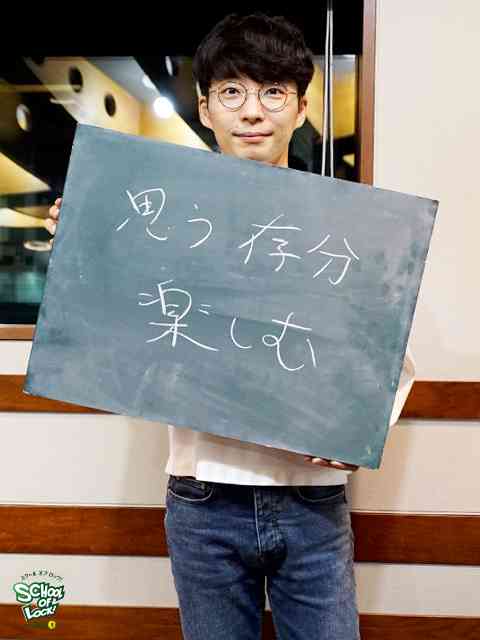 思う存分
楽しむ
スクール オブ ロック!
SCHOOL
OF
LOCK!